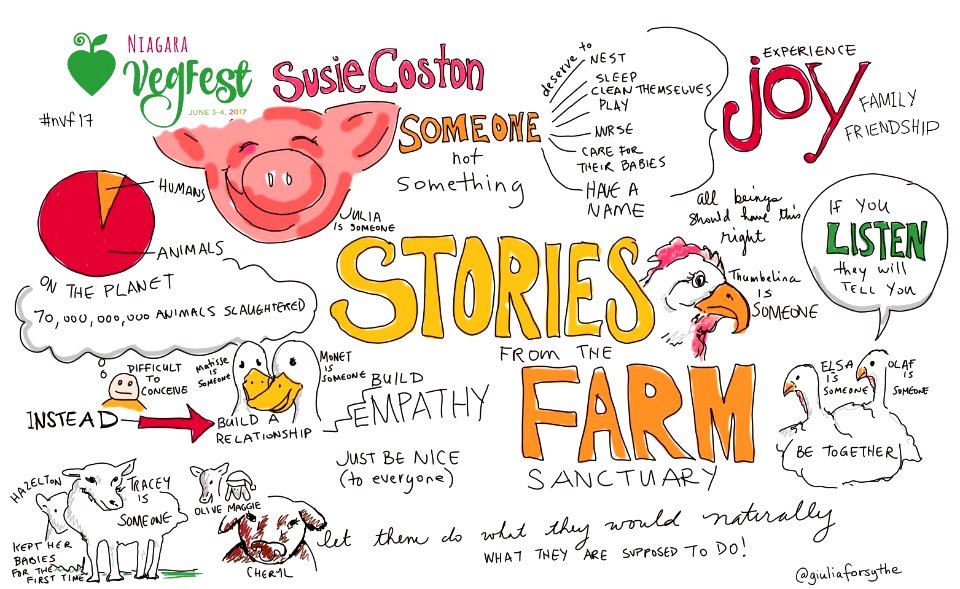 NIAGARA
VegFest
JUNE 3-4, 2017
#nvf17
Susie Coston
SOMEONE
not
something
deserve to
NEST
SLEEP
CLEAN THEMSELVES
PLAY
NURSE
CARE FOR
THEIR BABIES
HAVE A
NAME
all beings
should have this
right
EXPERIENCE
JOY
FAMILY
FRIENDSHIP
HUMANS
ANIMALS
ON THE PLANET
70,000,000,000 ANIMALS SLAUGHTERED
DIFFICULT
TO
CONCEIVE
JULIA
IS SOMEONE
STORIES
FROM THE
FARM
SANCTUARY
Thumbelina
IS
SOMEONE
IF YOU
LISTEN
they will
TELL YOU
ELSA
IS
SOMEONE
OLAF
IS
SOMEONE
BE TOGETHER
INSTEAD
Matisse
is
Someone
MONET
IS
SOMEONE
BUILD A
RELATIONSHIP
BUILD
EMPATHY
JUST BE NICE
(to everyone)
HAZELTON
TRACEY
IS
SOMEONE
KEPT HER
BABIES
FOR THE
FIRST TIME
OLIVE MAGGIE
CHERYL
let them do what they would naturally
WHAT THEY ARE SUPPOSED TO DO!
@giuliaforsythe